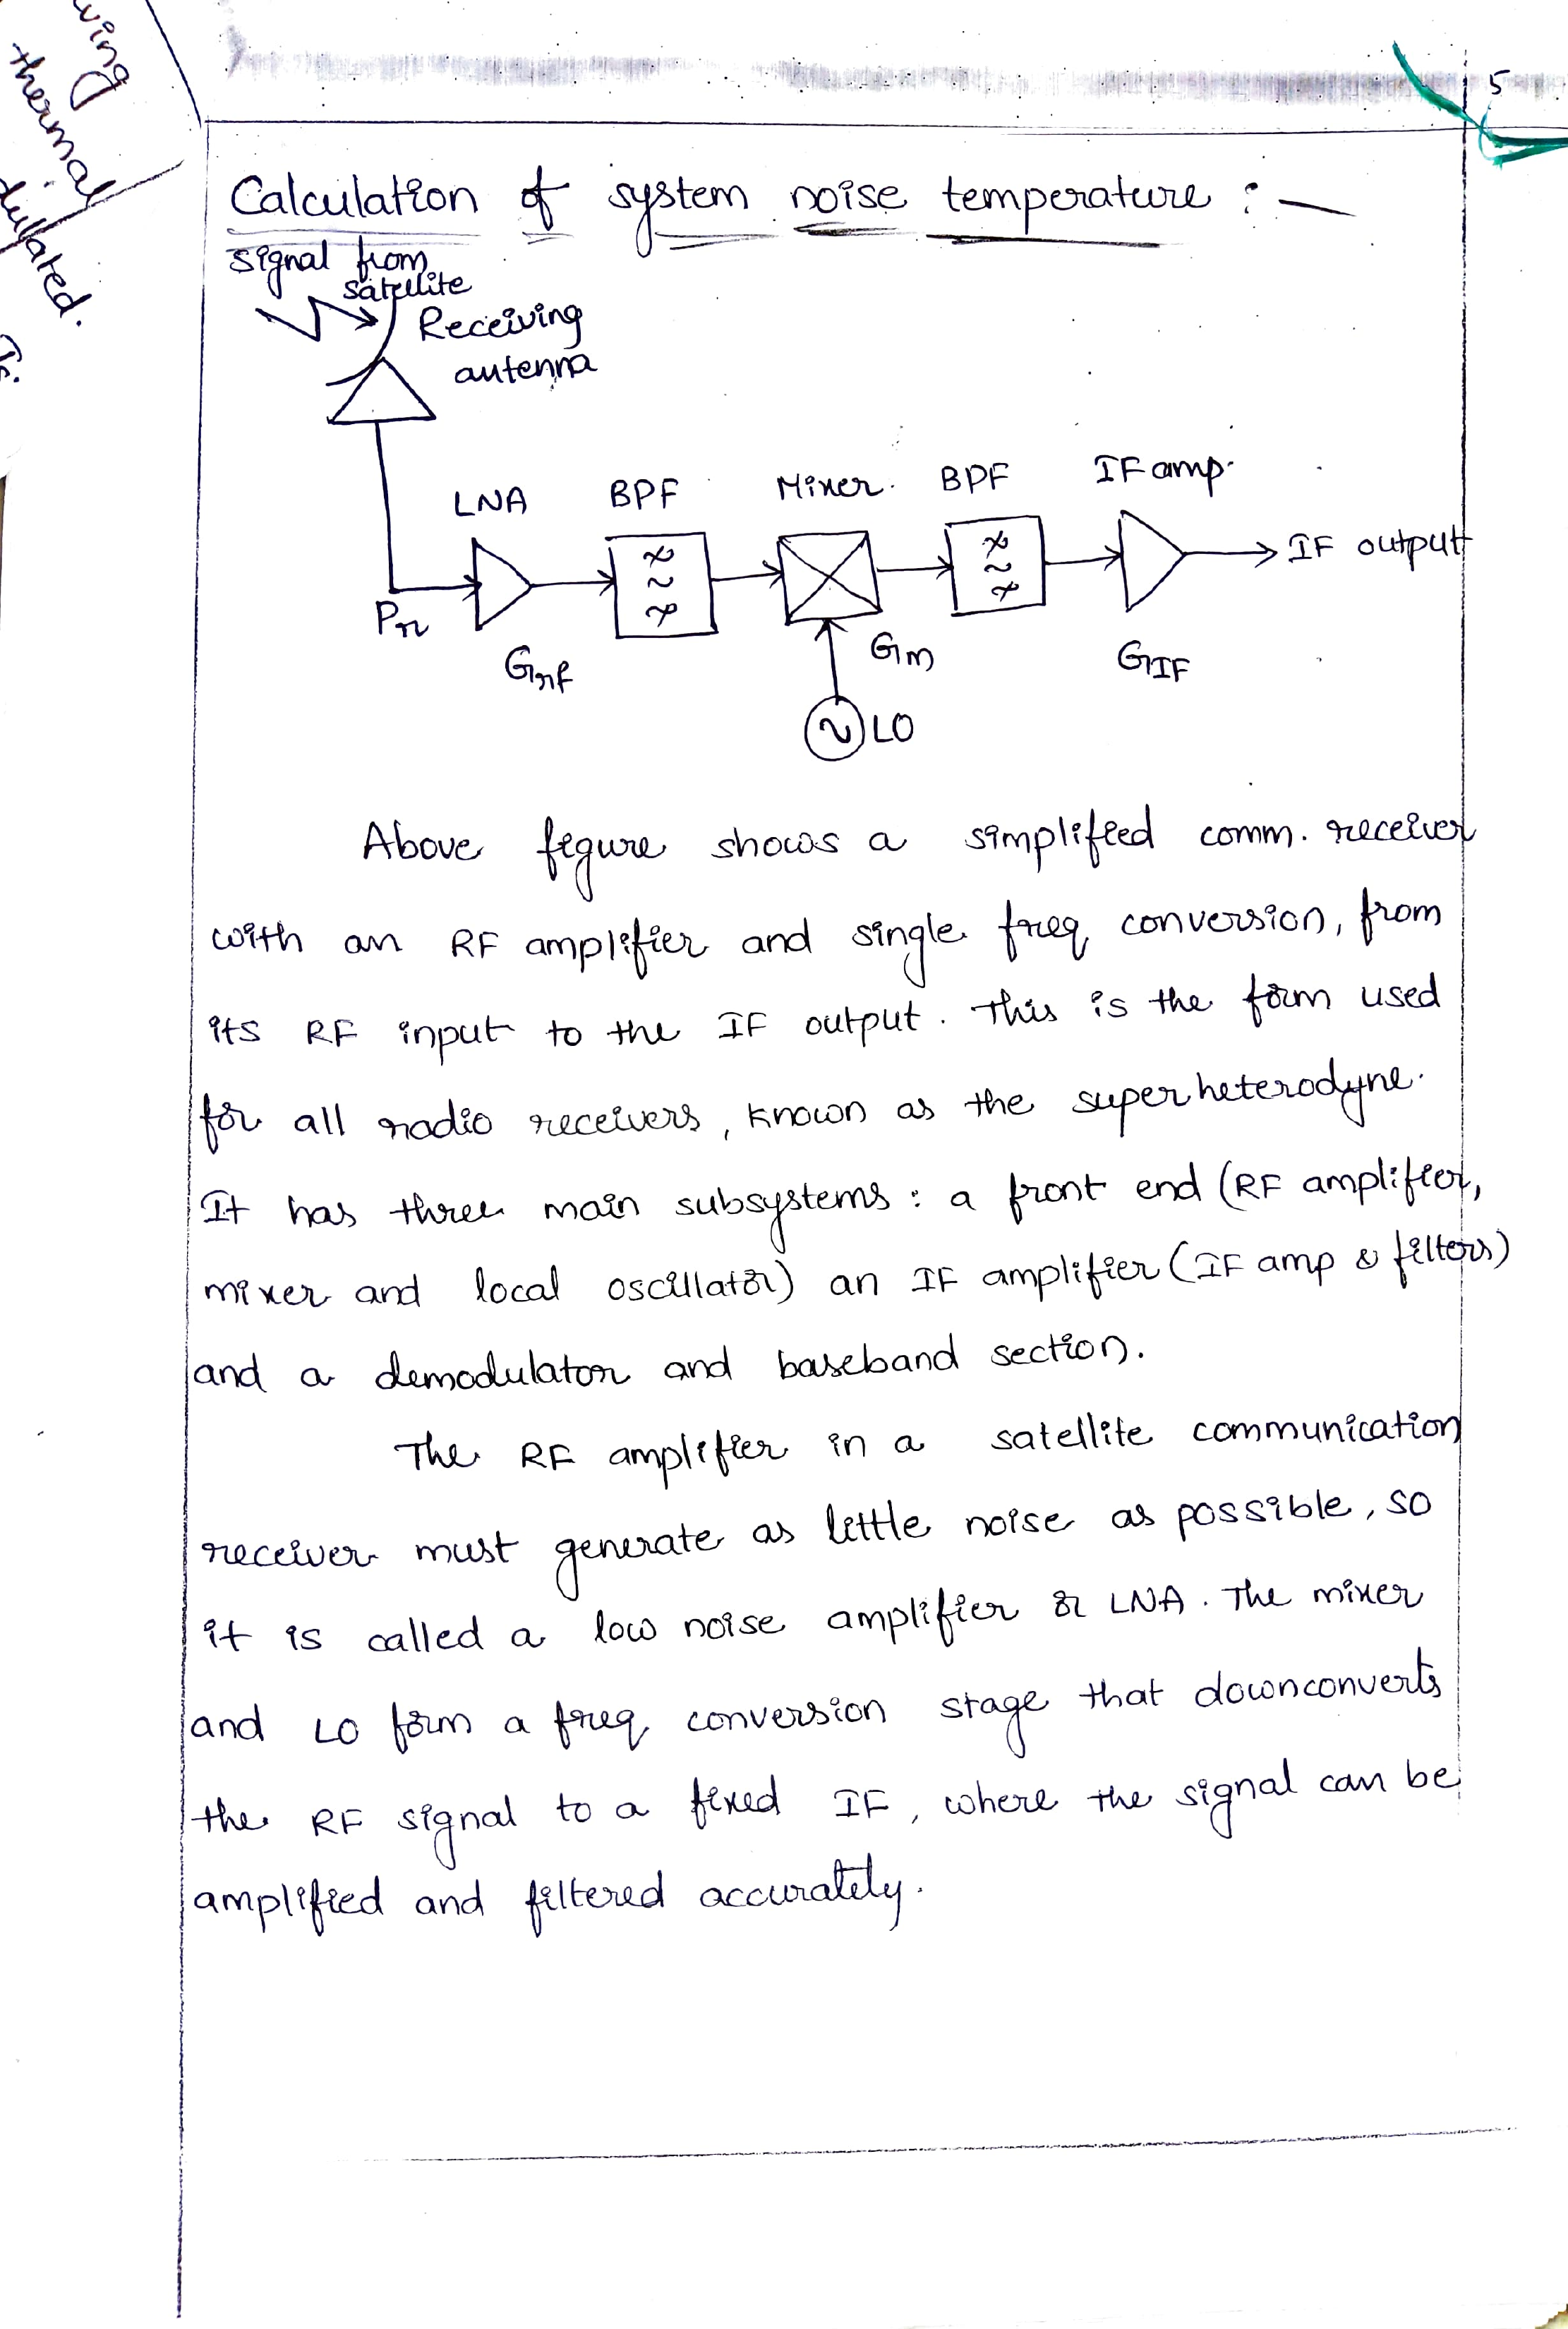 ving
thermal
dulated.
5
Calculation of system noise temperature :-
signal from
satellite
Receiving
autenna
LNA BPF Mixer. BPF IF amp.
IF output
Pr
Grf Gm GIF
LO
Above figure shows a simplified comm. receiver
with an RF amplifier and single freq conversion, from
its RF input to the IF output. This is the form used
for all radio receivers, known as the superheterodyne.
It has three main subsystems : a front end (RF amplifier,
mixer and local oscillator) an IF amplifier (IF amp & filters)
and a demodulator and baseband section.
The RF amplifier in a satellite communication
receiver must generate as little noise as possible, so
it is called a low noise amplifier or LNA. The mixer
and LO form a freq conversion stage that downconverts
the RF signal to a fixed IF, where the signal can be
amplified and filtered accurately.